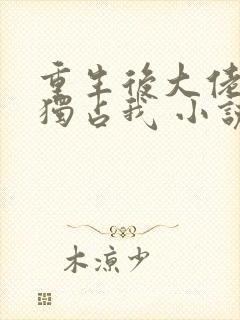 重生後大佬
獨占我 小說
木涼少